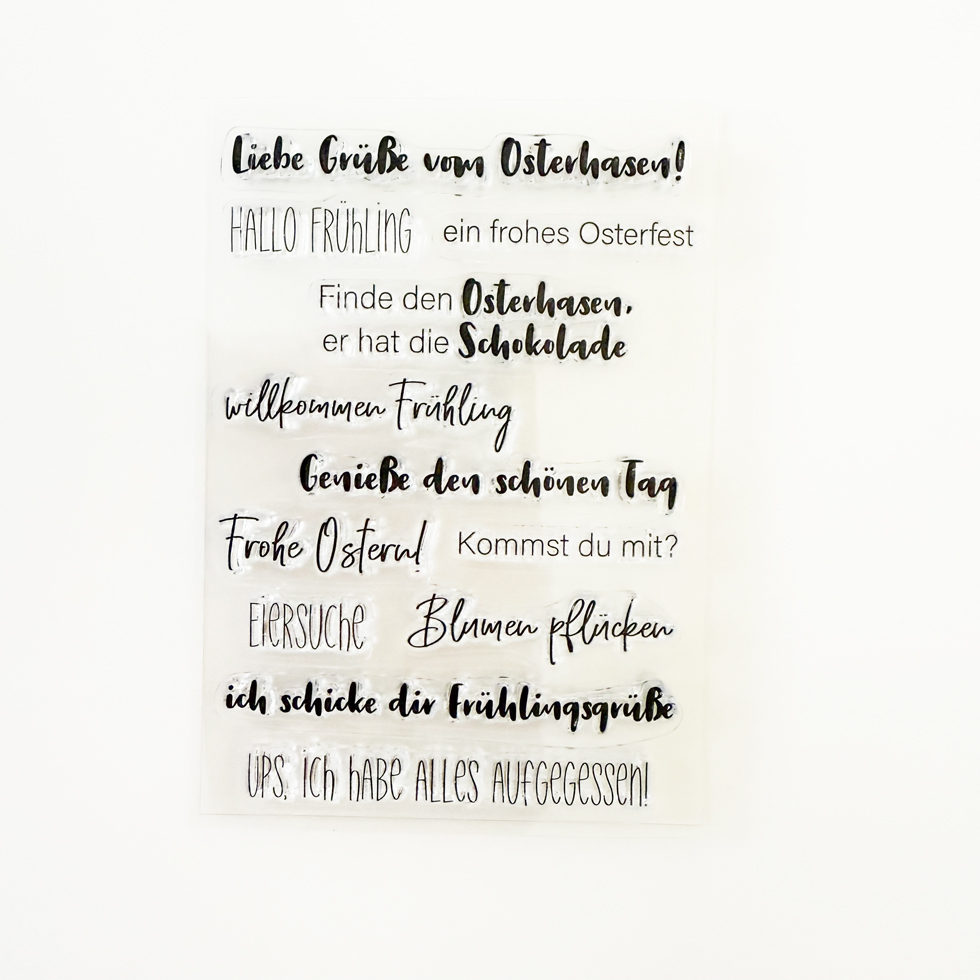 Liebe Grüße vom Osterhasen!
HALLO FRÜhLiNG ein frohes Osterfest
Finde den Osterhasen,
er hat die Schokolade
willkommen Frühling
Genieße den schönen Tag
Frohe Ostern! Kommst du mit?
EiERSUChe Blumen pflücken
ich schicke dir Frühlingsgrüße
UPS, iCh hABE ALLES AUFGEGESSEN!